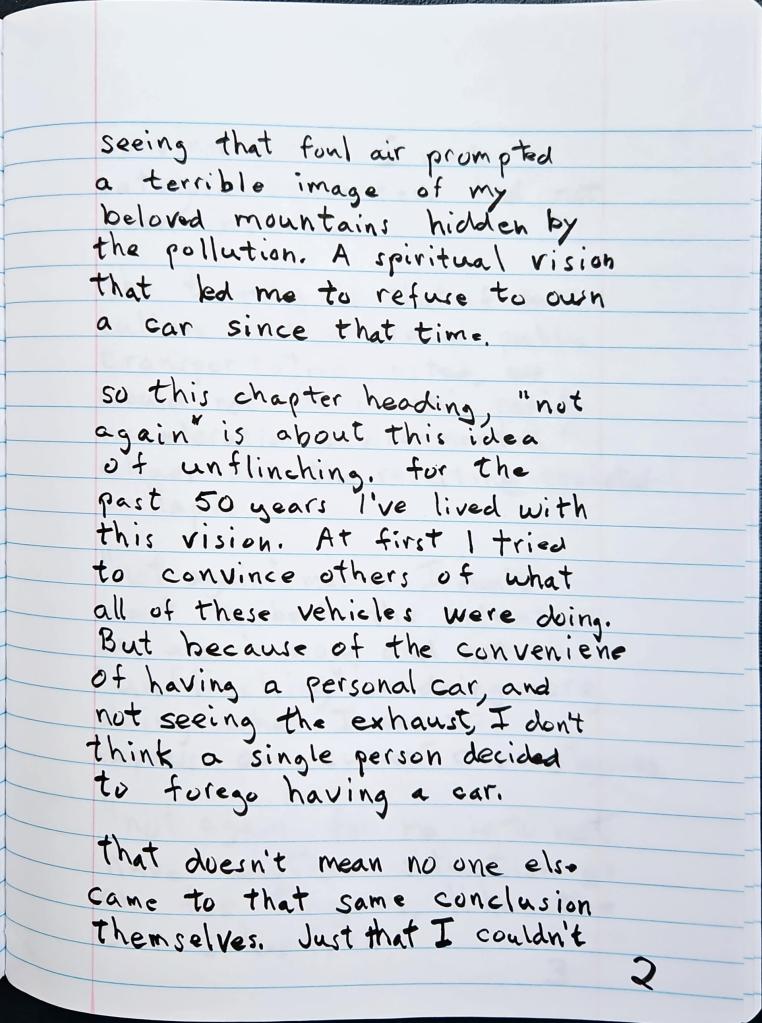 seeing that foul air prompted
a terrible image of my
beloved mountains hidden by
the pollution. A spiritual vision
that led me to refuse to own
a car since that time.
so this chapter heading, "not
again" is about this idea
of unflinching. for the
past 50 years I've lived with
this vision. At first I tried
to convince others of what
all of these vehicles were doing.
But because of the conveniene
of having a personal car, and
not seeing the exhaust, I don't
think a single person decided
to forego having a car.
that doesn't mean no one else
came to that same conclusion
themselves. Just that I couldn't
2